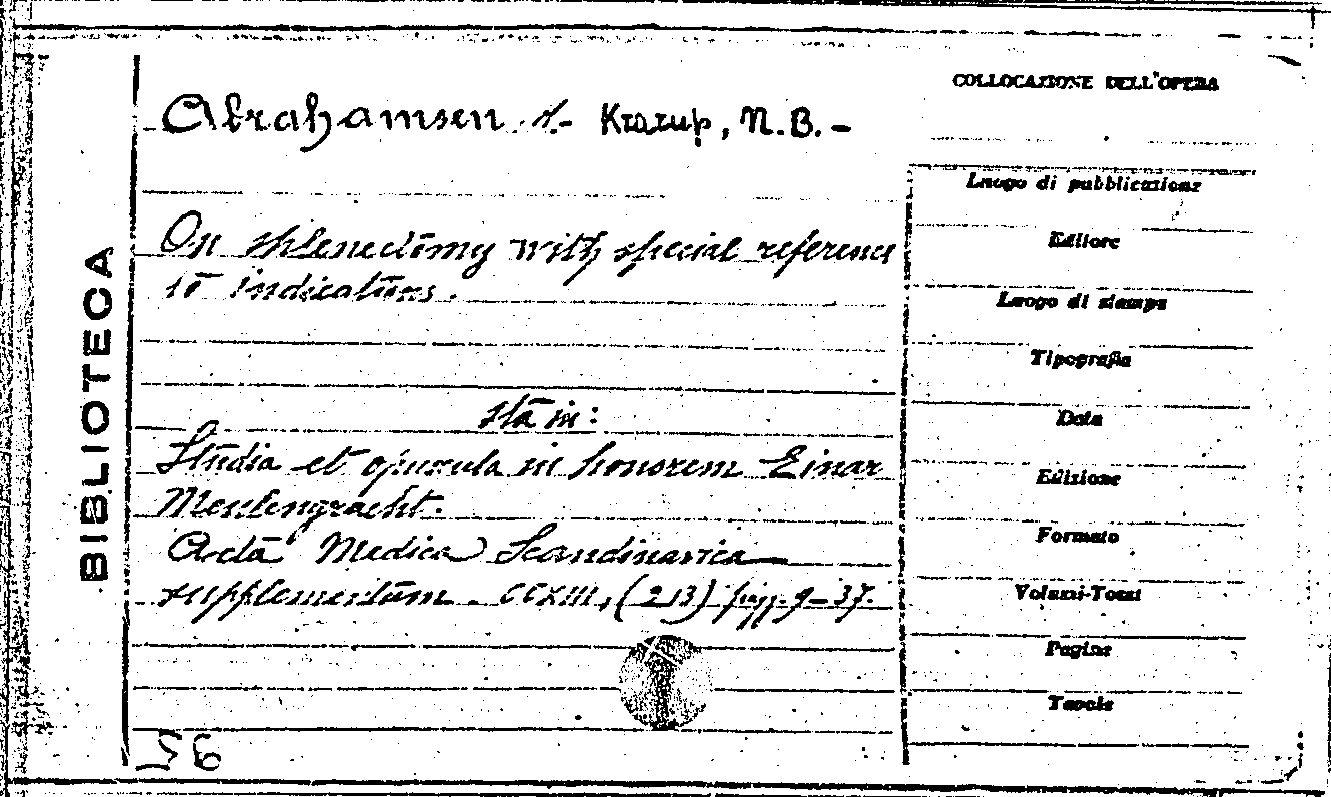 BIBLIOTECA
Abrahamsen .s.- Krarup, N.B. -
On splenectomy with special reference
to indications.
sta in:
Studia et opuscula in honorem Einar
Meulengracht.
Acta Medica Scandinavica
supplementum. CCXIII, (213) pagg. 9-37.
COLLOCAZIONE DELL'OPERA
Luogo di pubblicazione
Editore
Luogo di stampa
Tipografia
Data
Edizione
Formato
Volumi-Tomi
Pagine
Tavole